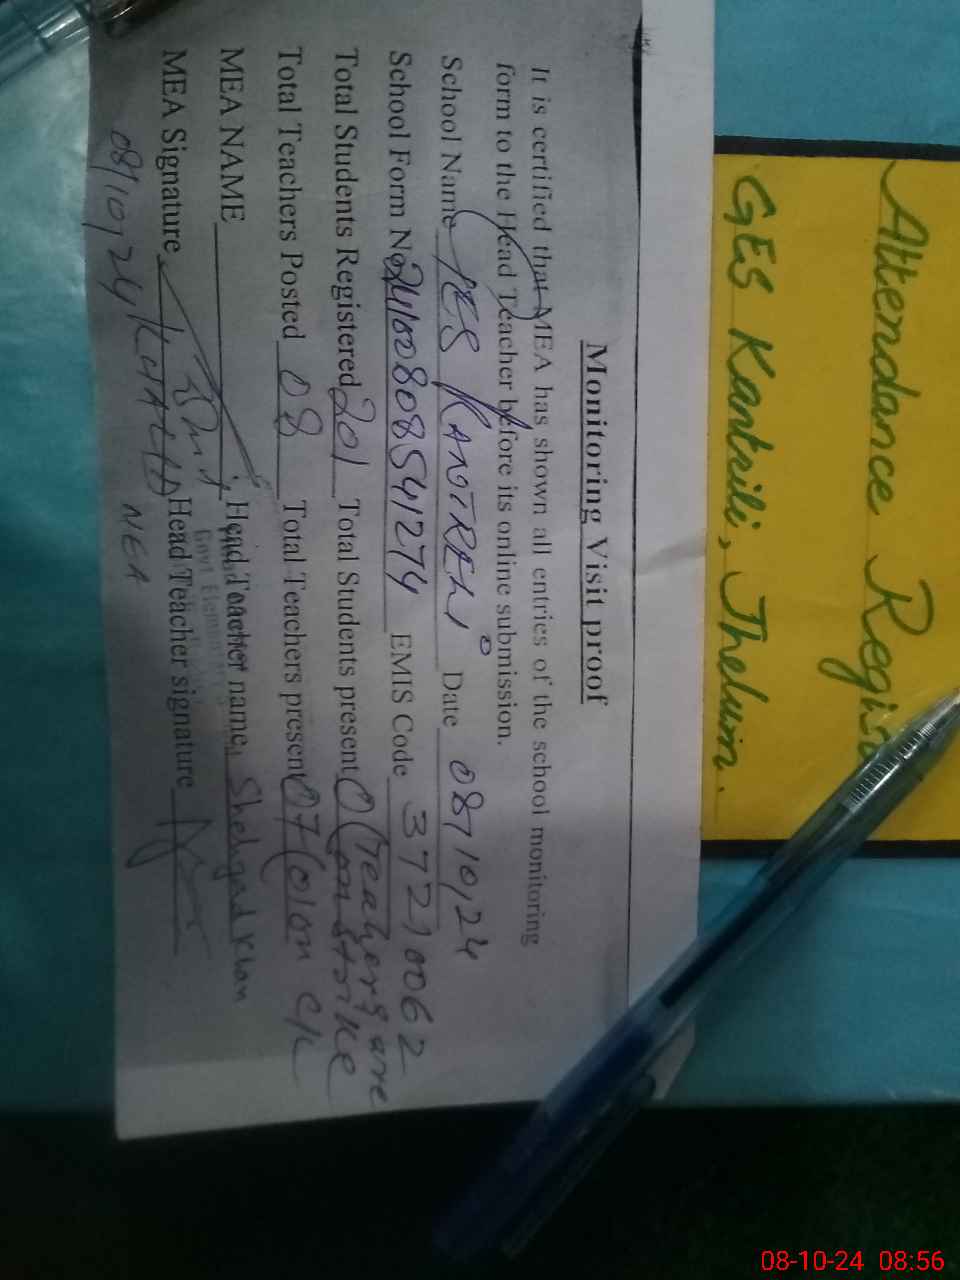 Attendance Regis
GES Kantrili, Jhelum.
Monitoring Visit proof
It is certified that MEA has shown all entries of the school monitoring
form to the Head Teacher before its online submission.
School Name GES KANTRELI Date 08/10/24
School Form No. EMIS Code 37210062
Total Students Registered 201 Total Students present 0 (Teachers are on strike
Total Teachers Posted 08 Total Teachers present 07 (01 on C/L
MEA NAME Head Teacher name, Shehzad Khan
MEA Signature Head Teacher signature
08/10/24 MEA
08-10-24 08:56